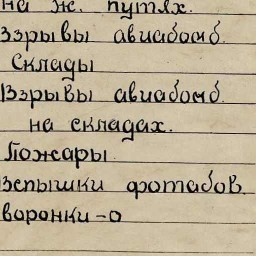 на ж. путях.
Взрывы авиабомб.
Склады
Взрывы авиабомб.
на складах.
Пожары.
Вспышки фотабов.
воронки-о